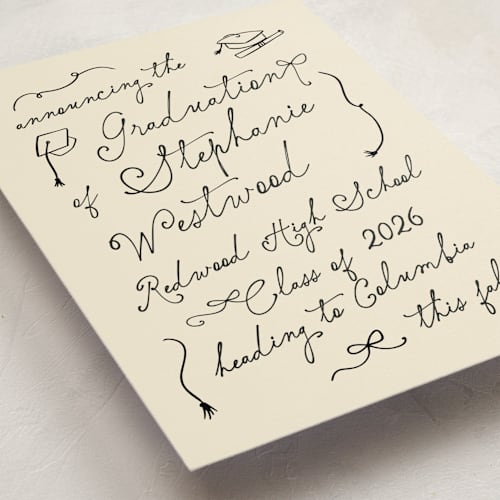 announcing the
Graduation
of Stephanie
Westwood
Redwood High School
Class of 2026
heading to Columbia
this fal